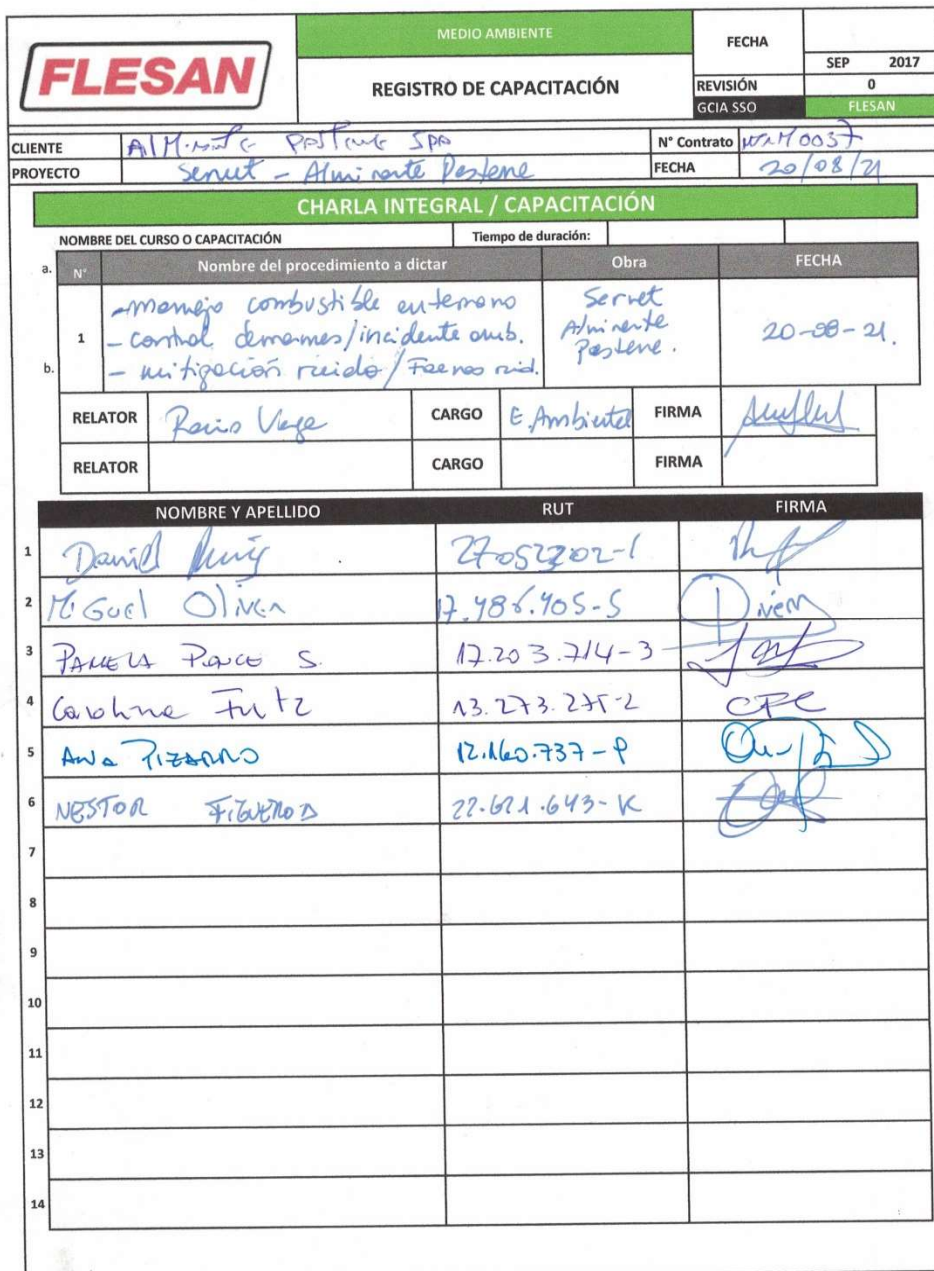 FLESAN
MEDIO AMBIENTE
REGISTRO DE CAPACITACIÓN
FECHA
SEP 2017
REVISIÓN 0
GCIA SSO FLESAN
CLIENTE Alminte Pastene SPA N° Contrato 0037
PROYECTO Servet - Almirante Pastene FECHA 20/08/21
CHARLA INTEGRAL / CAPACITACIÓN
NOMBRE DEL CURSO O CAPACITACIÓN Tiempo de duración:
a. N° Nombre del procedimiento a dictar Obra FECHA
b. 1 - manejo combustible en terreno Servet Almirante Pastene. 20-08-21.
- control derrames/incidente amb.
- mitigación ruido/Faenas ruid.
RELATOR Rocio Vega CARGO E. Ambiental FIRMA
RELATOR CARGO FIRMA
NOMBRE Y APELLIDO RUT FIRMA
1 David
2 Miguel Oliven 17.486.405-5
3 PAMELA PONCE S. 17.203.714-3
4 Carolina Fritz 13.273.275-2 CFC
5 ANA PIZARRO 12.160.737-
6 NESTOR FIGUEROA 22.621.643-K
7
8
9
10
11
12
13
14